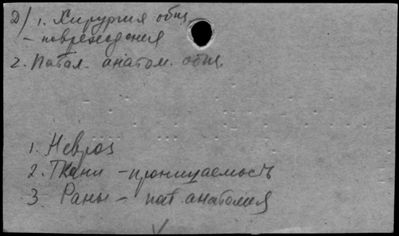 2/ 1. Хирургия общ.
– повреждения
2. Патал. анатом. общ.
1. Невроз
2. Ткани – проницаемость
3. Раны – пат. анатомия